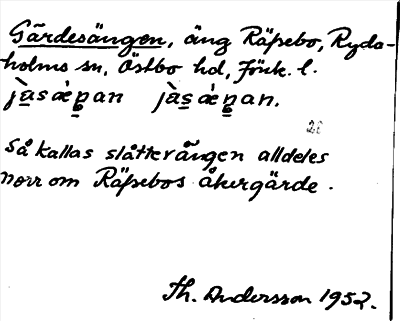 Gärdesängen, äng Räpsebo, Ryda-
holms sn, Östbo hd, Jönk. l.
så kallas slåtterängen alldeles
norr om Räpsebos åkergärde.
Th. Andersson 1952.